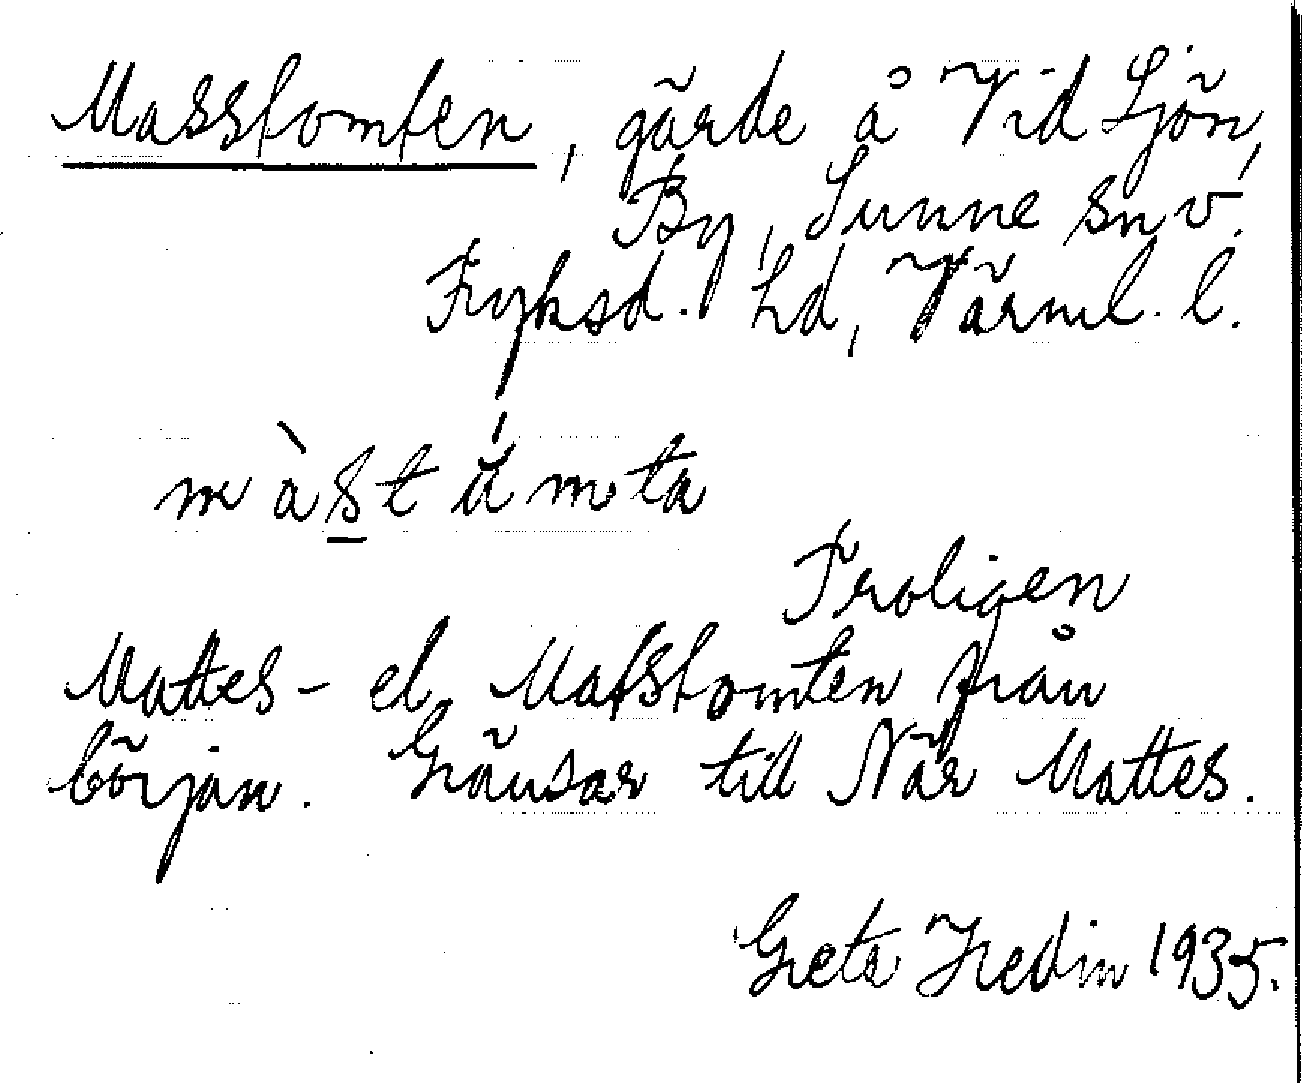 Masstomten, gärde å Vid Sjön,
By, Sunne sn v.
Fryksd. hd, Värml. l.
màstǻmta
Troligen
Mattes- el. Matstomten från
början. Gränsar till När Mattes.
Greta Hedin 1935.